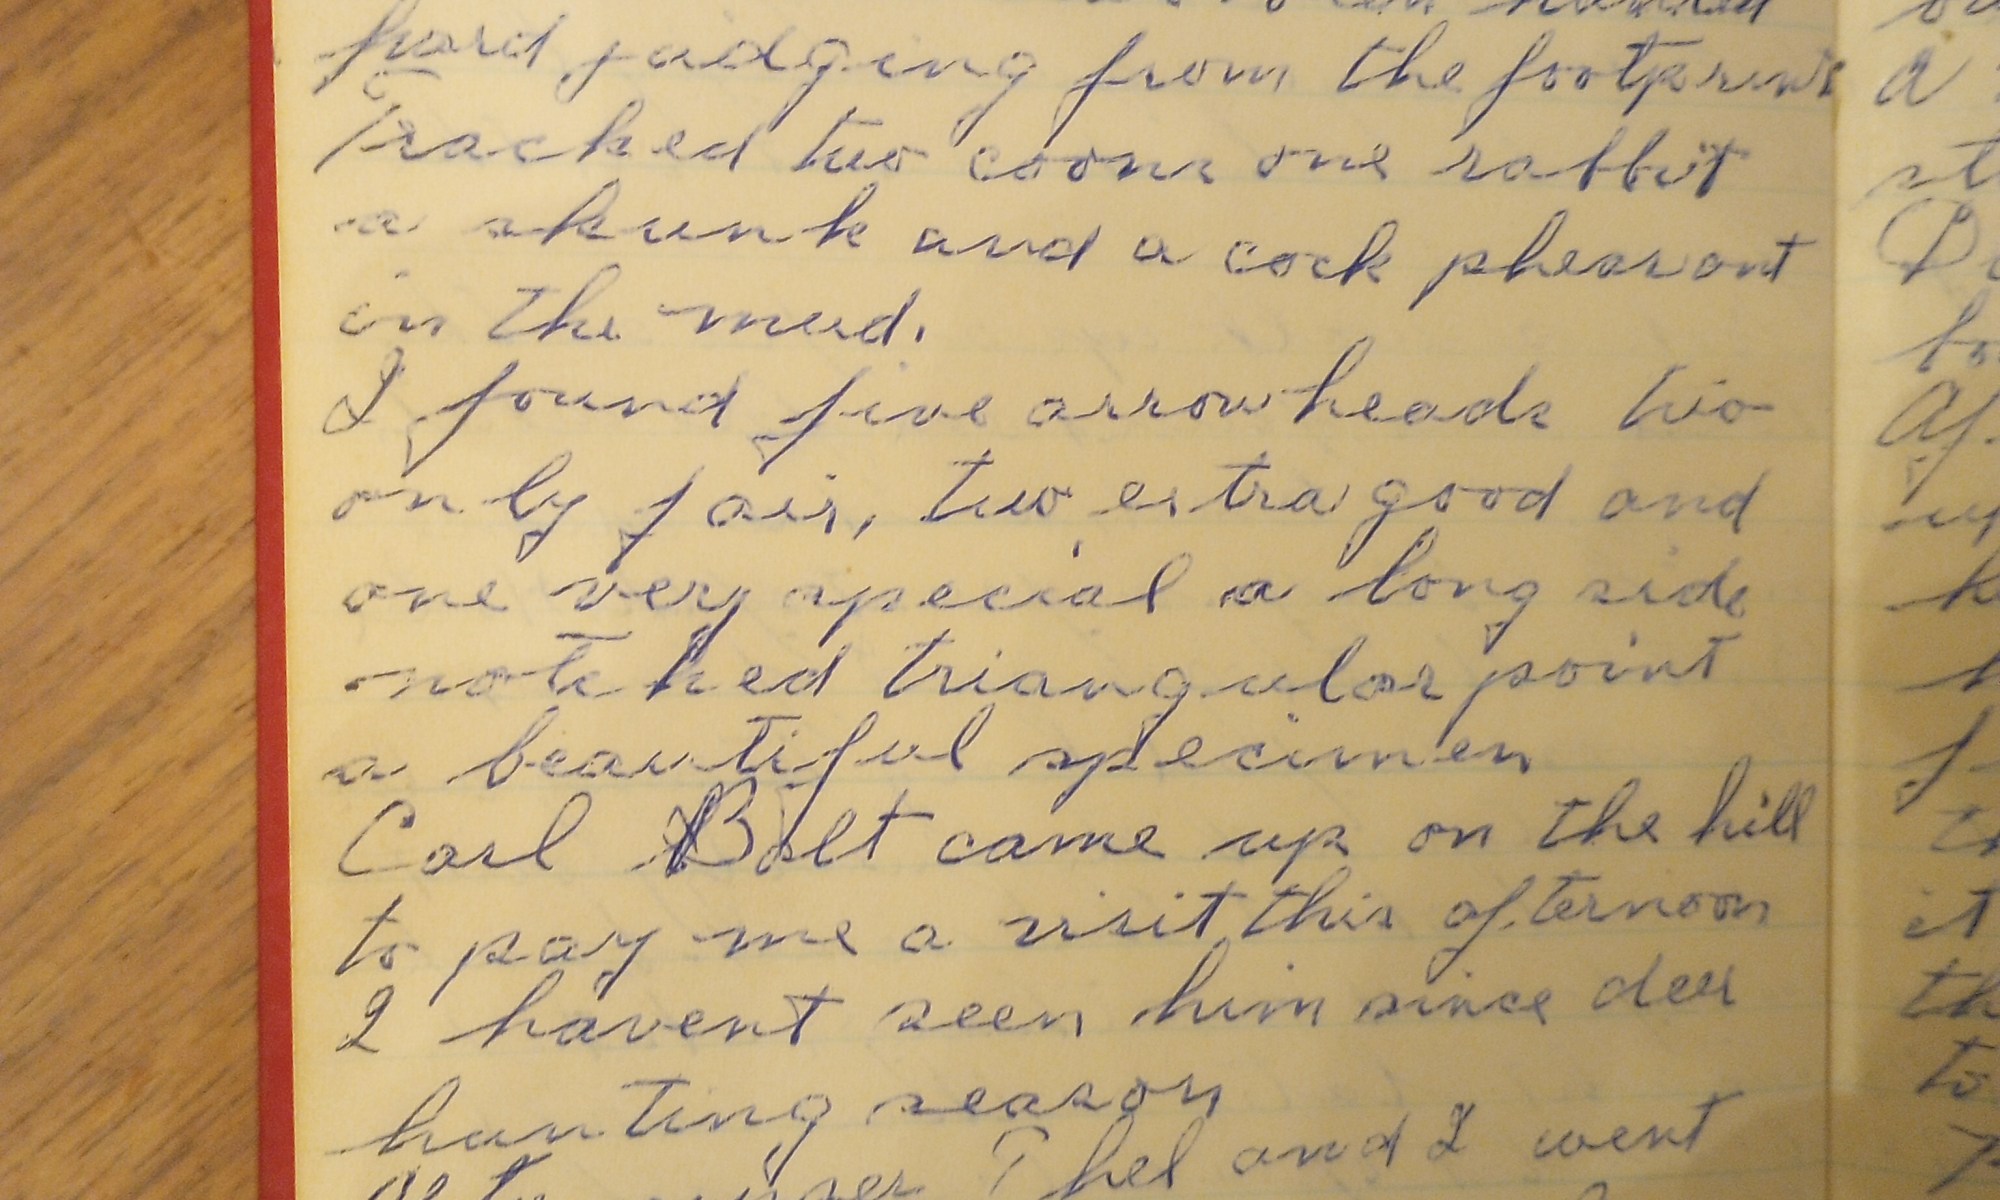 hunted
hard judging from the footprints
Tracked two coons one rabbit
a skunk and a cock pheasant
in the mud.
I found five arrowheads two
only fair, two extra good and
one very special a long side
notched triangular point
a beautiful specimen
Carl Bolt came up on the hill
to pay me a visit this afternoon
I havent seen him since deer
hunting season
After supper Thel and I went